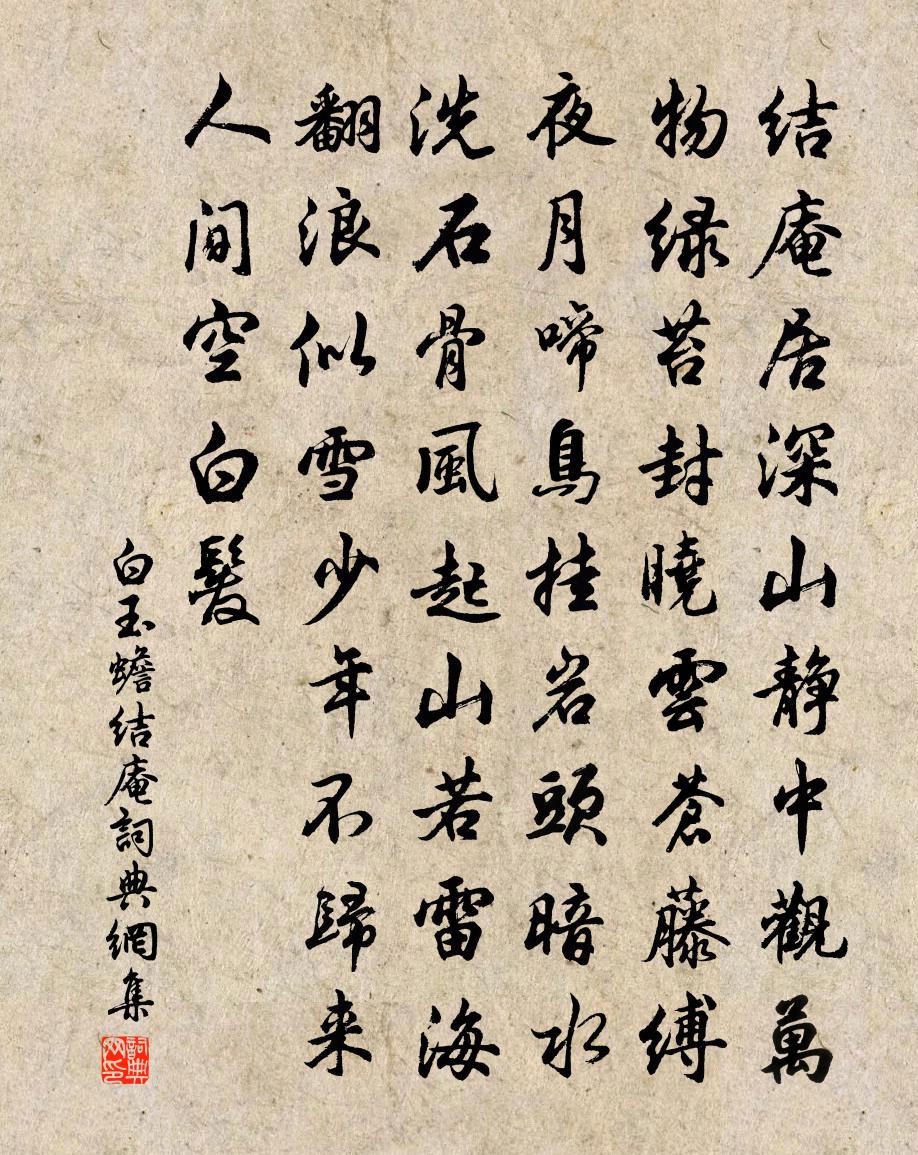 结庵居深山静中觀萬
物绿苔封曉雲蒼藤縛
夜月啼鳥挂岩頭暗水
洗石骨風起山若雷海
翻浪似雪少年不歸来
人间空白髮
白玉蟾结庵詞典網集
詞典网印